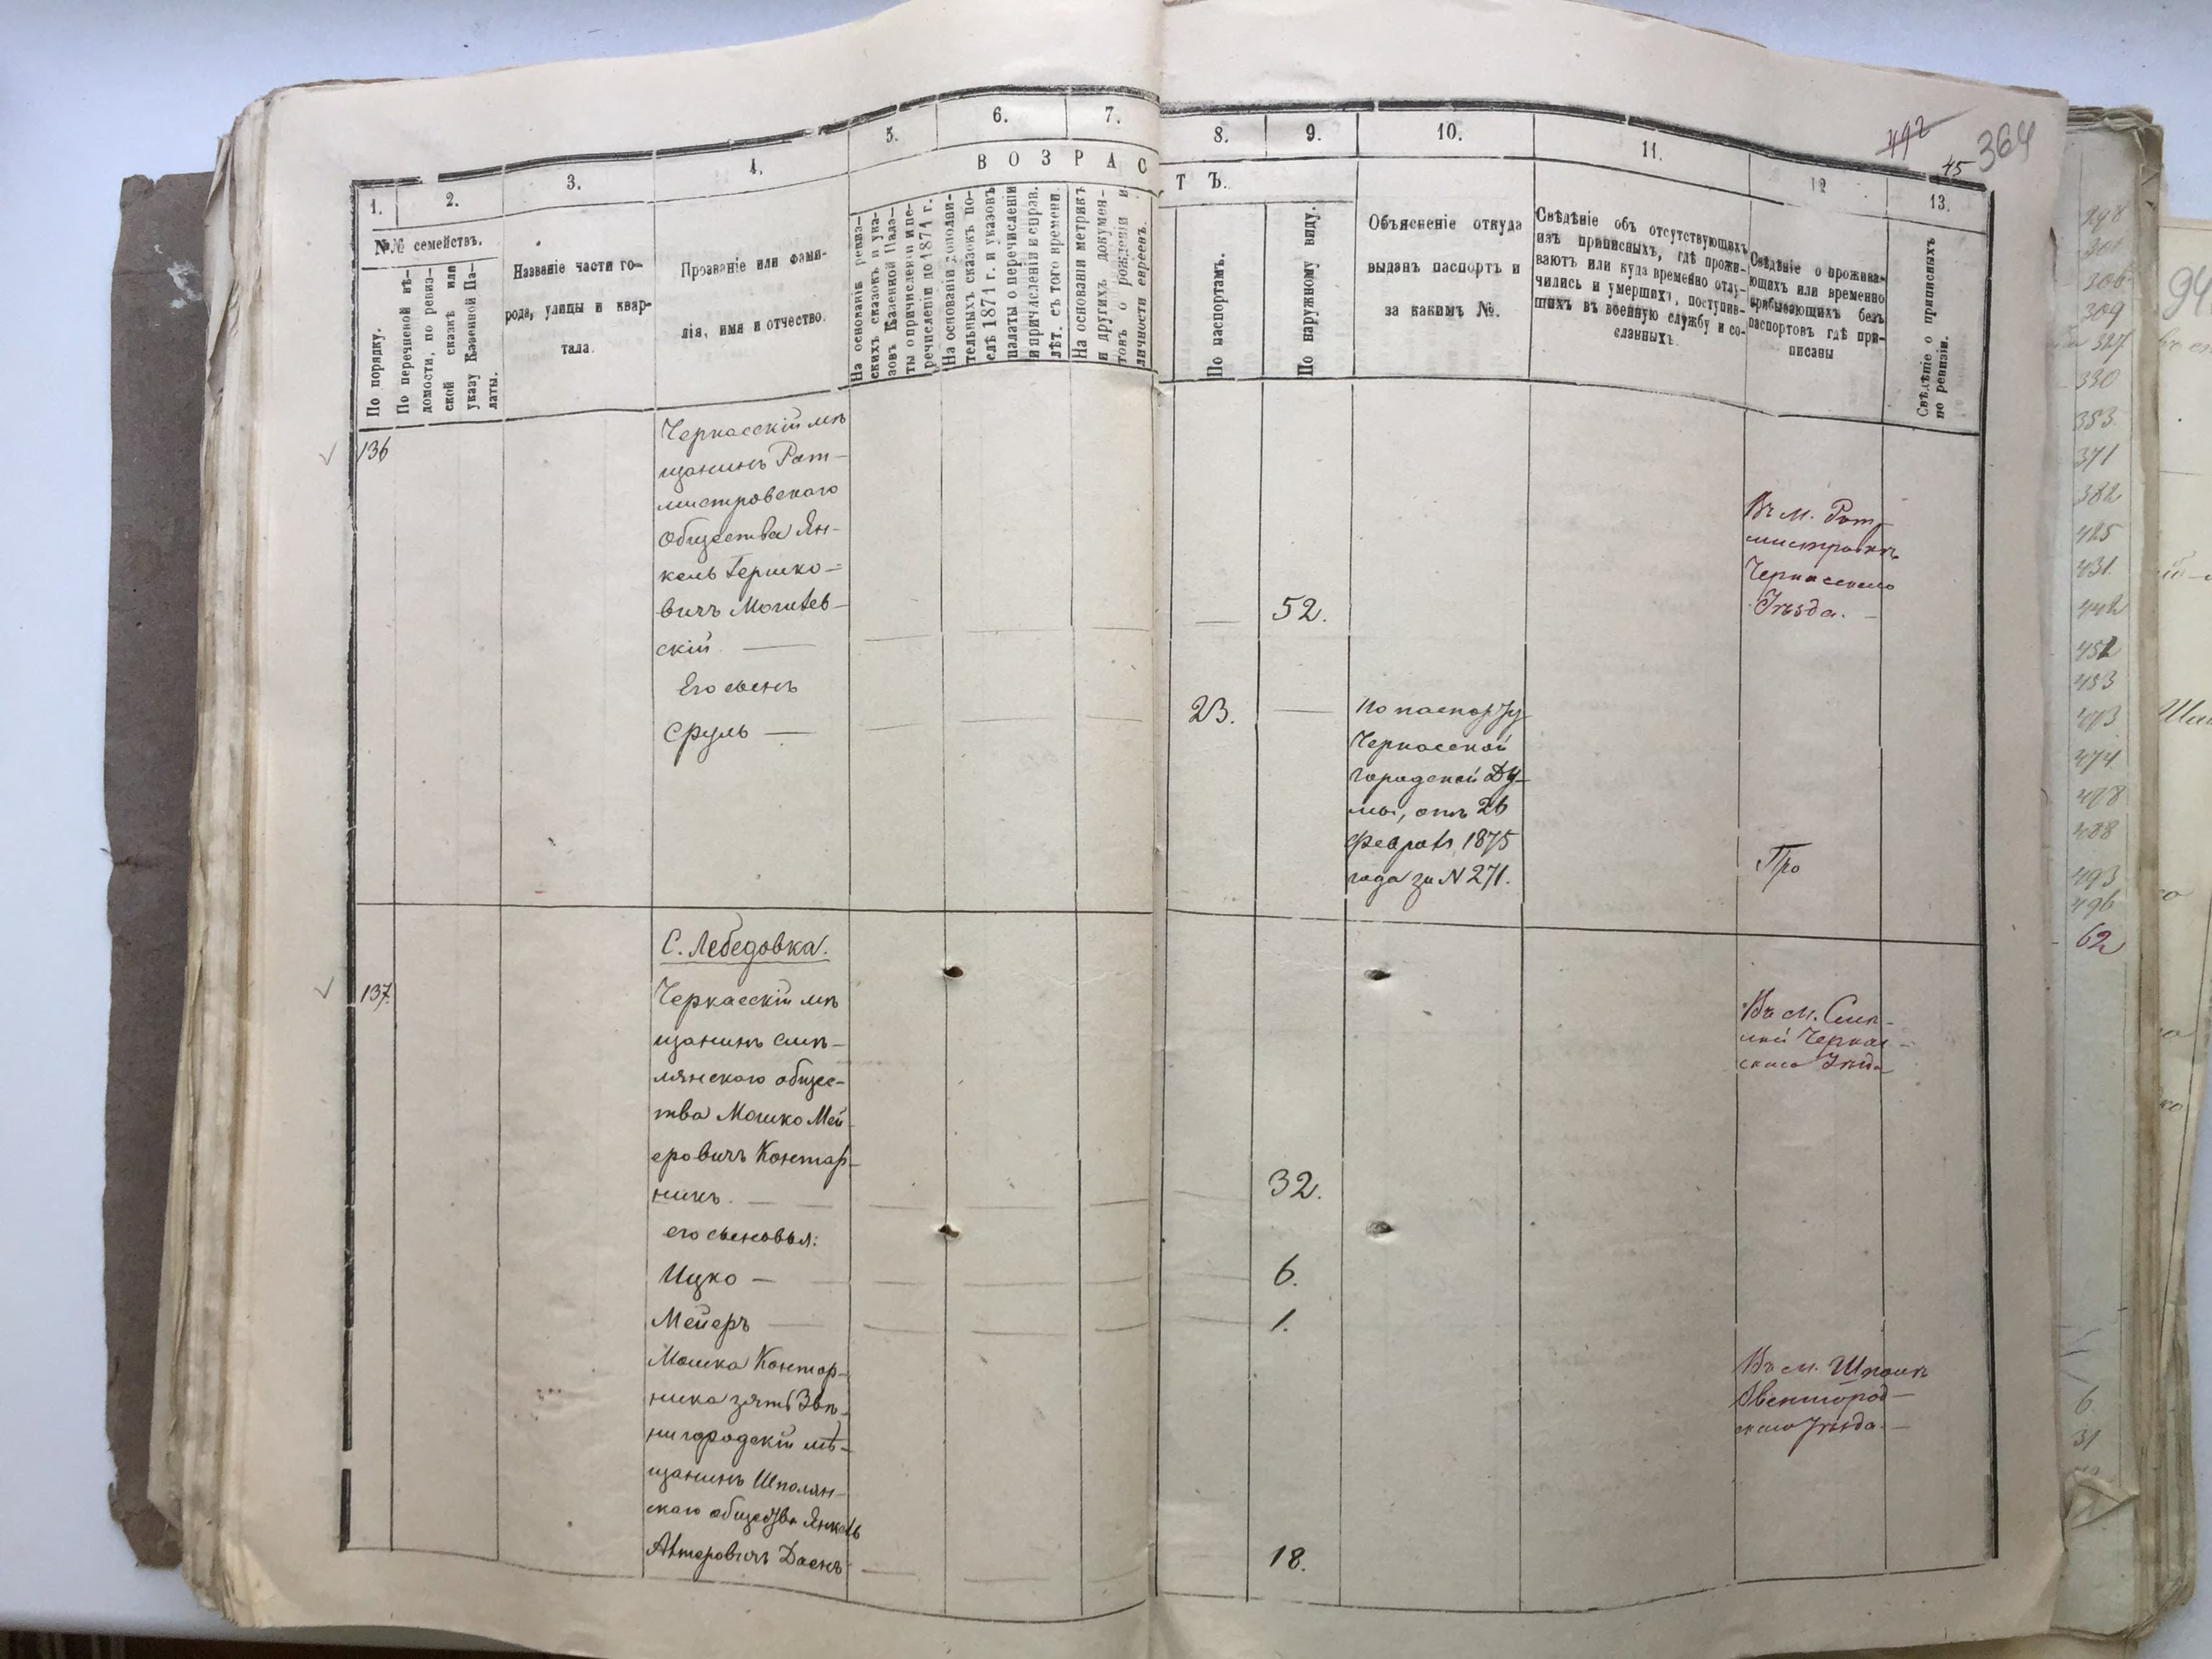 1.
2.
3.
4.
5.
6.
7.
8.
9.
10.
11.
12
13.
492
45
364
В О З Р А С Т Ъ.
№№ семействъ.
По порядку.
По перечневой вѣ-
домости, по ревиз-
ской сказкѣ или
указу Казенной Па-
латы.
Названіе части го-
рода, улицы и квар-
тала.
Прозваніе или фами-
лія, имя и отчество.
На основаніи ревиз-
скихъ сказокъ и ука-
зовъ Казенной Пала-
ты о причисленіи и пе-
речисленіи до 1874 г.
На основаніи дополни-
тельныхъ сказокъ по-
слѣ 1874 г. и указовъ
палаты о перечисленіи
и причисленіи и справ.
лѣт. съ того времени.
На основаніи метрикъ
и другихъ докумен-
товъ о рожденіи и
личности евреевъ.
По паспортамъ.
По наружному виду.
Объясненіе откуда
выданъ паспортъ и
за какимъ №.
Свѣдѣніе объ отсутствующихъ
изъ приписныхъ, гдѣ прожи-
ваютъ или куда временно отлу-
чились и умершихъ, поступив-
шихъ въ военную службу и со-
сланныхъ.
Свѣдѣніе о прожива-
ющихъ или временно
прибывающихъ безъ
паспортовъ гдѣ при-
писаны
Свѣдѣніе о приписныхъ
по ревизіи.
136
Черкасскій мѣ
щанинъ Рот-
мистровскаго
Общества Ян-
кель Гершко-
вичъ Могилев-
скій
52.
Въ м. Рот
мистровкѣ
Черкасскаго
Уѣзда.
Его сынъ
Сруль
23.
По паспорту
Черкасской
городской Ду-
мы, отъ 26
Февраля 1875
года за N 271.
Про
С. Лебедовка.
137.
Черкасскій мѣ
щанинъ Смѣ-
лянскаго общес-
тва Мошко Мей
еровичъ Контар-
никъ.
32.
Въ м. Смѣ-
лой Черкас-
скаго Уѣзда
его сыновья:
Ицко
6.
Мейеръ
1.
Мошка Контар-
ника зять Зве-
нигородскій мѣ-
щанинъ Шполян-
скаго общества Янкель
Алтеровичъ Даенъ
18.
Въ м. Шполѣ
Звенигород-
скаго уѣзда.
298
301
306
309
327
330
353
371
382
425
431
442
452
453
473
474
478
488
493
496
62
6
31
94